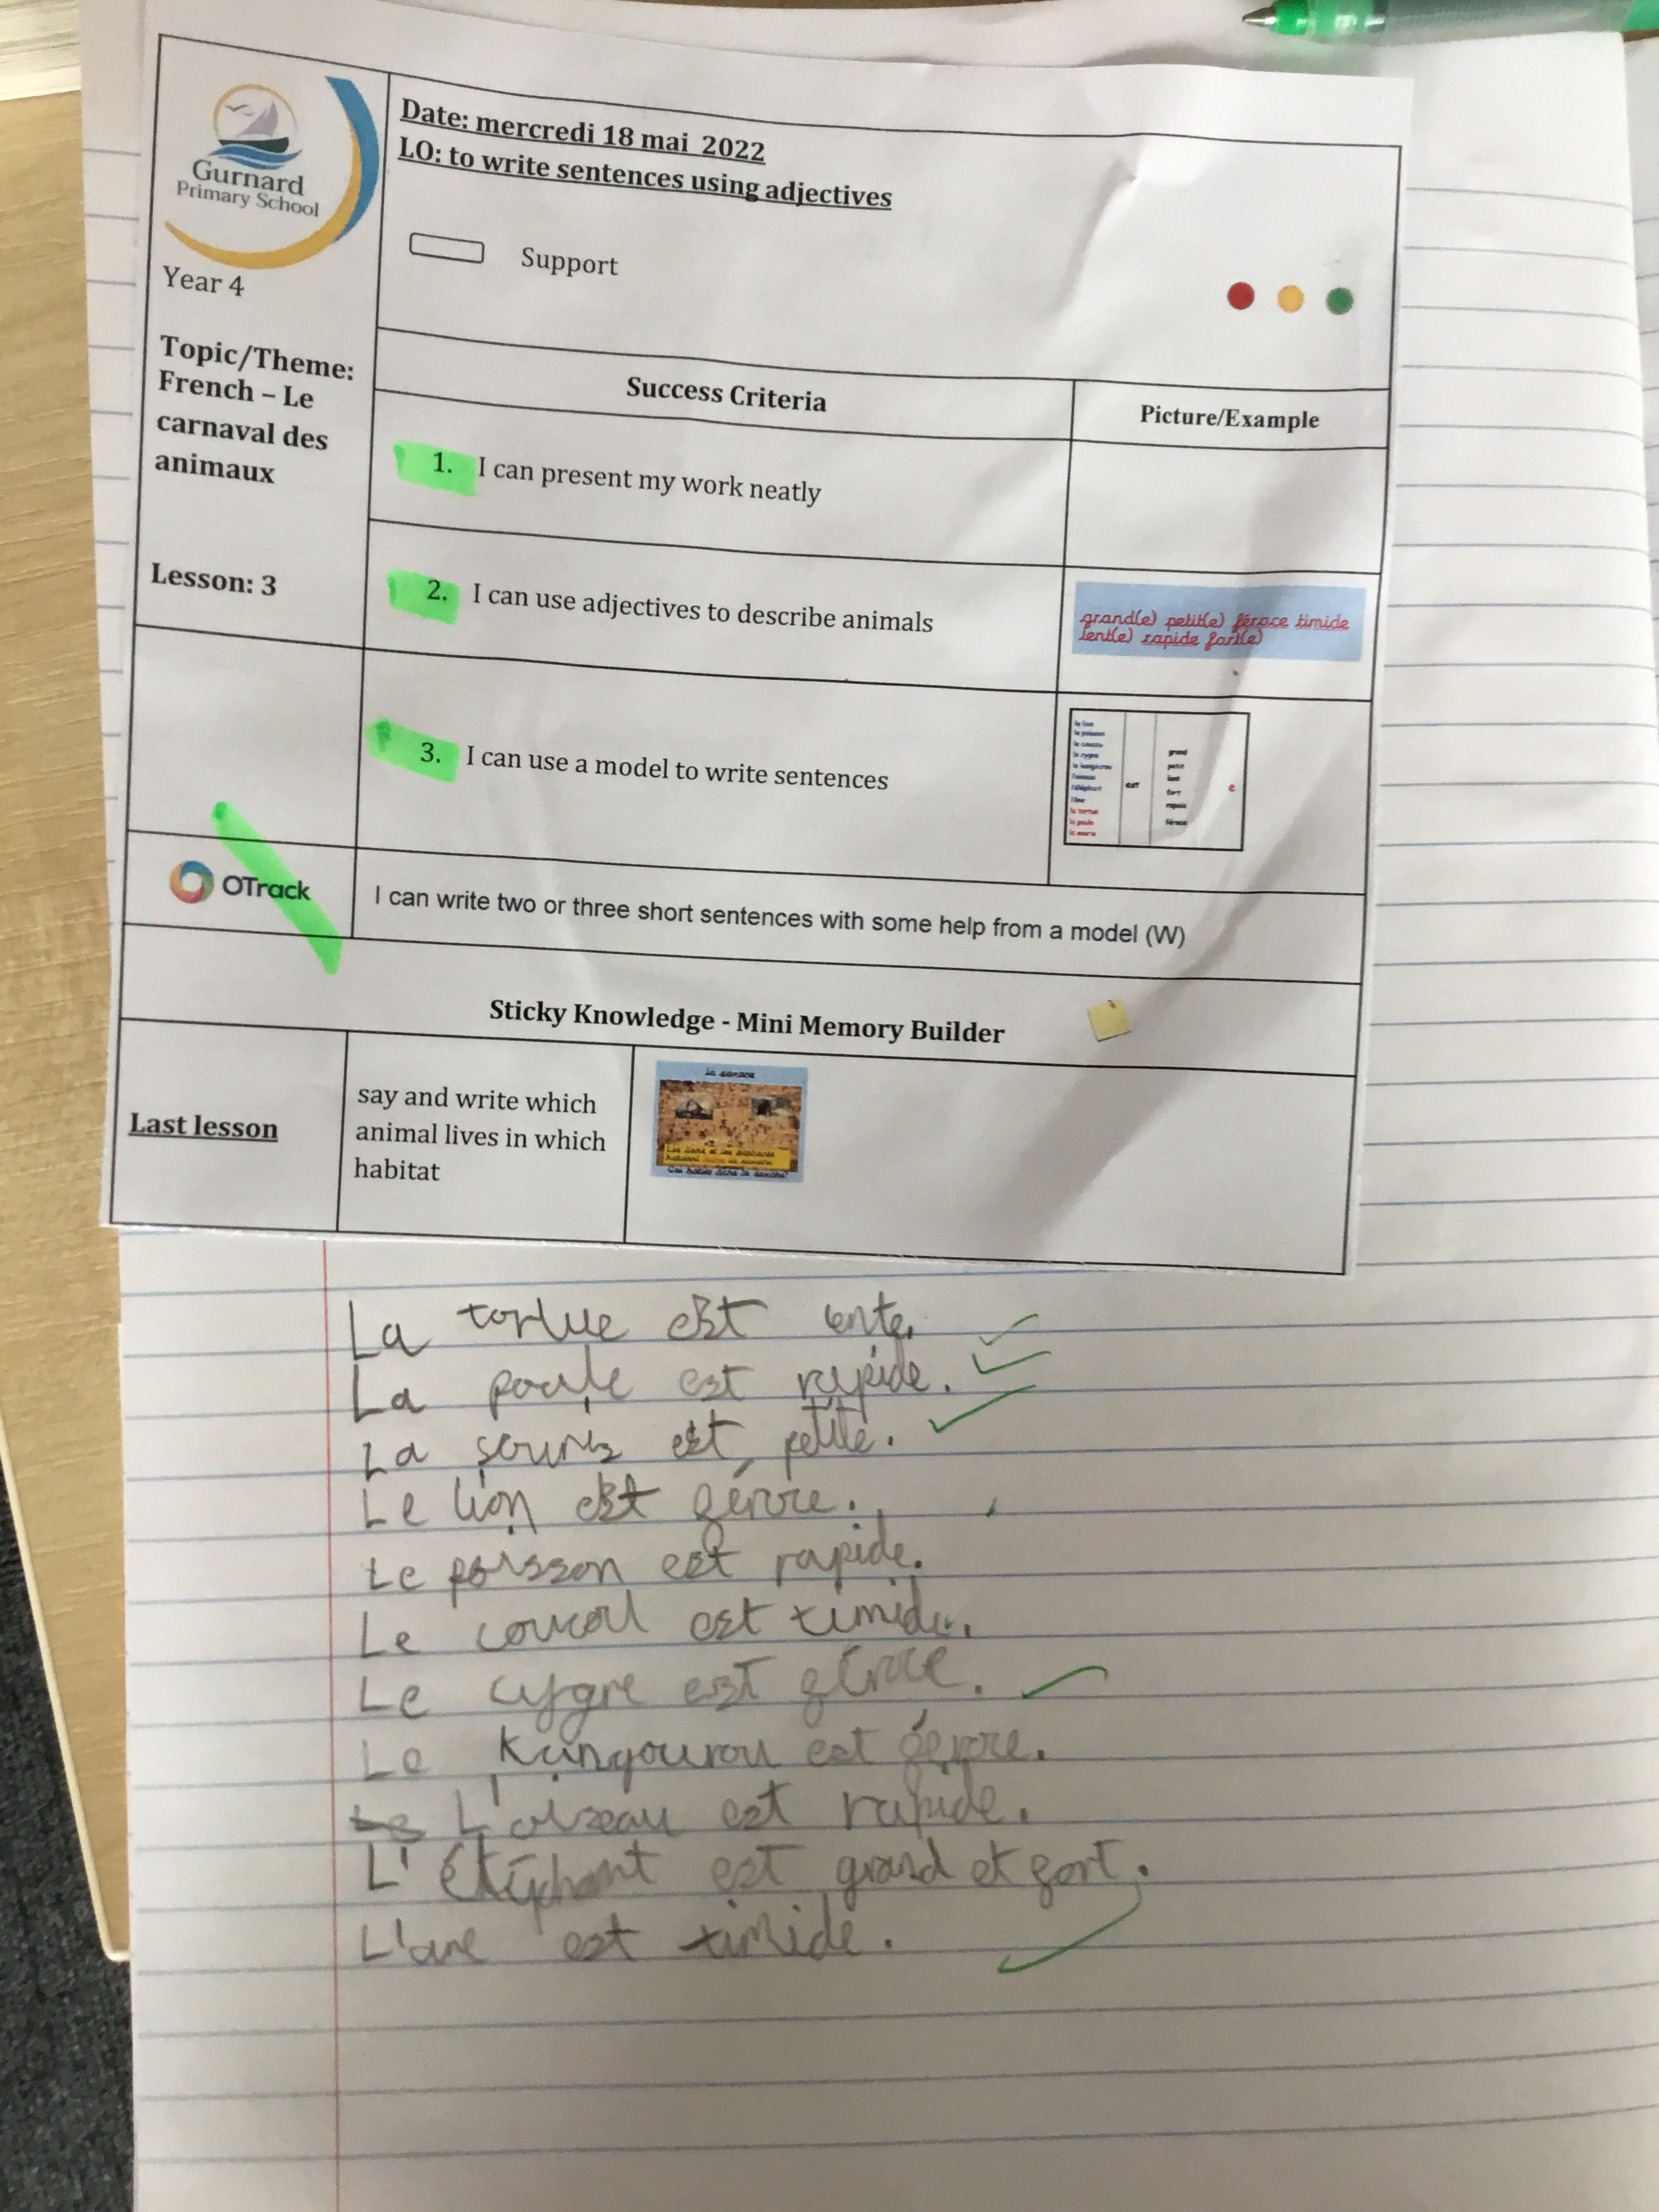 Gurnard
Primary School
Year 4
Topic/Theme:
French – Le
carnaval des
animaux
Lesson: 3
Date: mercredi 18 mai 2022
LO: to write sentences using adjectives
Support
Success Criteria
Picture/Example
1. I can present my work neatly
2. I can use adjectives to describe animals
grand(e) petit(e) féroce timide
lent(e) rapide fort(e)
3. I can use a model to write sentences
est
grand
petit
lent
fort
rapide
féroce
e
OTrack
I can write two or three short sentences with some help from a model (W)
Sticky Knowledge - Mini Memory Builder
Last lesson
say and write which
animal lives in which
habitat
La tortue est lente.
La poule est rapide.
La souris est petite.
Le lion est féroce.
Le poisson est rapide.
Le coucou est timide.
Le cygne est féroce.
Le kangourou est féroce.
Le L'oiseau est rapide.
L'éléphant est grand et fort.
L'ane est timide.